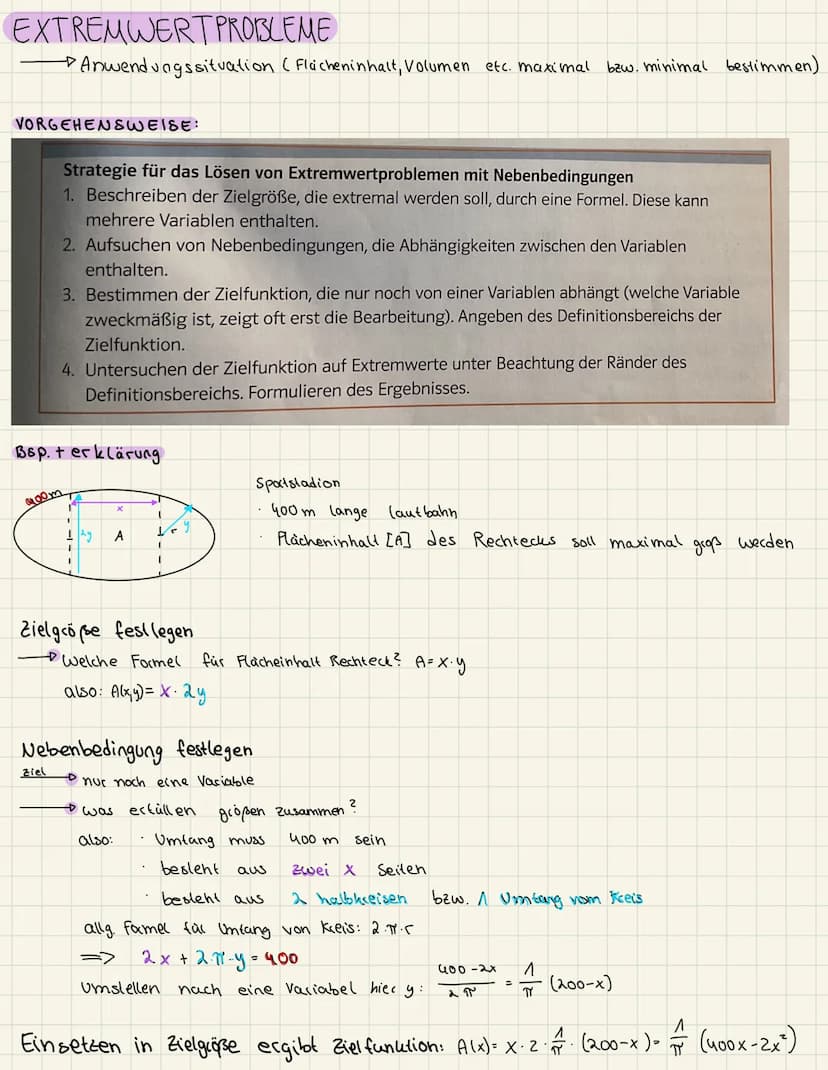 EXTREMWERTPROBLEME
→ Anwendungssituation ( Flächeninhalt, Volumen etc. maximal bzw. minimal bestimmen)
VORGEHENSWEISE:
Strategie für das Lösen von Extremwertproblemen mit Nebenbedingungen
1. Beschreiben der Zielgröße, die extremal werden soll, durch eine Formel. Diese kann
mehrere Variablen enthalten.
2. Aufsuchen von Nebenbedingungen, die Abhängigkeiten zwischen den Variablen
enthalten.
3. Bestimmen der Zielfunktion, die nur noch von einer Variablen abhängt (welche Variable
zweckmäßig ist, zeigt oft erst die Bearbeitung). Angeben des Definitionsbereichs der
Zielfunktion.
4. Untersuchen der Zielfunktion auf Extremwerte unter Beachtung der Ränder des
Definitionsbereichs. Formulieren des Ergebnisses.
Bsp. + erklärung
400m
x
2y A r y
Sportstadion
· 400 m lange Laufbahn
· Flächeninhalt [A] des Rechtecks soll maximal groß werden
Zielgröße festlegen
→ Welche Formel für Flächeinhalt Rechteck? A=x·y
also: A(x,y)= x · 2y
Nebenbedingung festlegen
Ziel → nur noch eine Variable
→ was erfüllen größen zusammen?
also: · Umfang muss 400 m sein
· besteht aus zwei x Seiten
· besteht aus 2 halbkreisen bzw. 1 Umfang vom Kreis
allg. Formel für Umfang von Kreis: 2·π·r
=> 2x + 2·π·y = 400
Umstellen nach eine Variabel hier y: (400-2x)/(2π) = 1/π (200-x)
Einsetzen in Zielgröße ergibt Zielfunktion: A(x)= x·2·1/π·(200-x)= 1/π (400x-2x²)